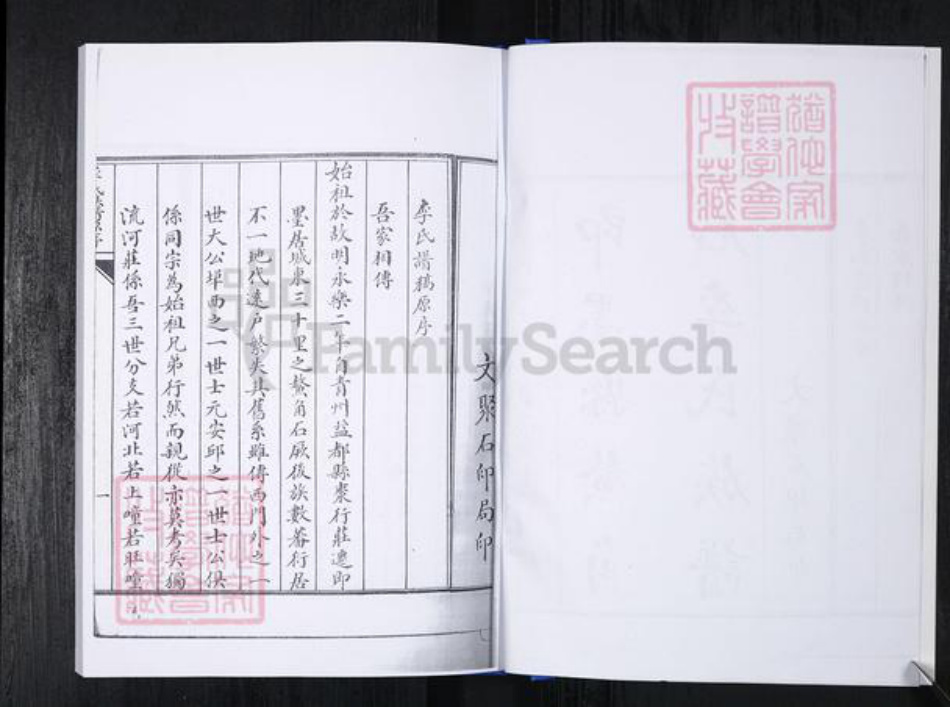 猶他家
譜學會
收藏
文聚石印局印
李氏譜稿原序
吾家相傳
始祖於故明永樂二年自青州益都縣棗行莊遷即
墨居城東三十里之鰲角石厥後族數蕃衍居
不一地代遠戶繁失其舊系雖傳西門外之一
世大公埠西之一世士元安邱之一世士公俱
係同宗為始祖兄弟行然而親從亦莫考矣獨
流河莊係吾三世分支若河北若上疃若旺疃
一
猶他家
譜學會
收藏
FamilySearch